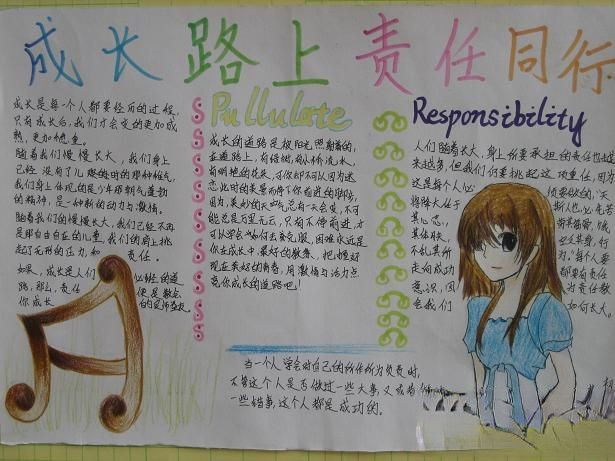 成长路上责任同行
成长是每一个人都要经历的过程,
只有成长后,我们才会变的更加成
熟,更加稳重。
随着我们慢慢长大,我们身上
已经没有了儿时的那种稚气,
我们身上体现的是少年那朝气蓬勃
的精神,是一种新的动力与激情。
随着我们的慢慢长大,我们已经不再
是那自由自在的儿童,我们的肩上挑
起了无形的压力,和责任。
如果,成长是人们必经的道
路,那么,责任便是教会
你成长
Pullulate
成长的道路是被阳光照耀着的,
在道路上,有绿树,有小桥流水,
有明艳的花朵,可你却不可以因为迷
恋此时的美景而停下你前进的脚步,
因为,美妙的天空总有一天会变,不可
能总是万里无云,只有不停前进,才
可以学会如何去克服,困难永远是
你在成长中最好的教卷,把握好
现在美好的青春,用激情与活力点
亮你成长的道路吧!
Responsibility
人们随着长大,身上所要承担的责任也越
来越多,但我们何要挑起这项重任,因为
这是每个人必须要做的,“天
将降大任于斯人也,必先苦
其心志,
走向成功都要有责任
意识,因为责任教
会我们如何长大。
当一个人学会对自己的所作所为负责时,
不管这个人是否做过一些大事,又或者
一些错事,这个人都是成功的。